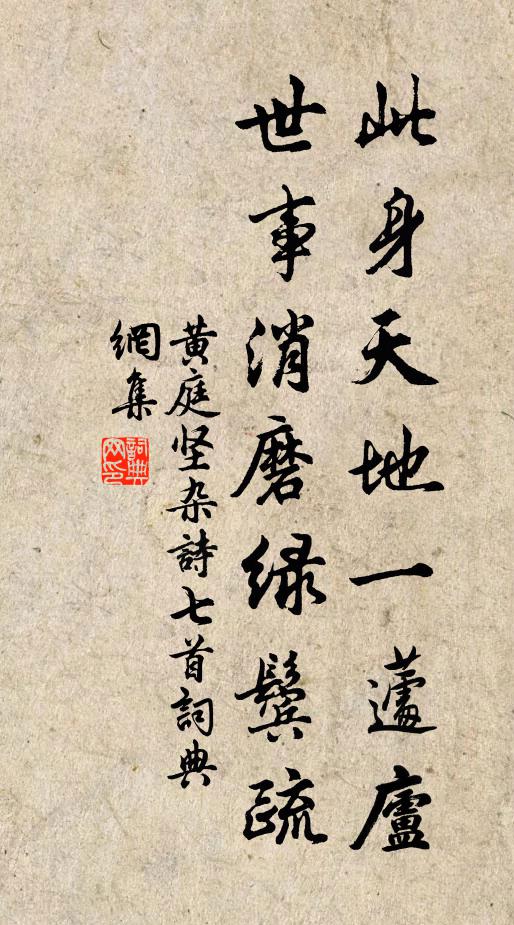 此身天地一蘧廬
世事消磨绿鬓疏
黄庭坚杂詩七首詞典
網集
詞典網印